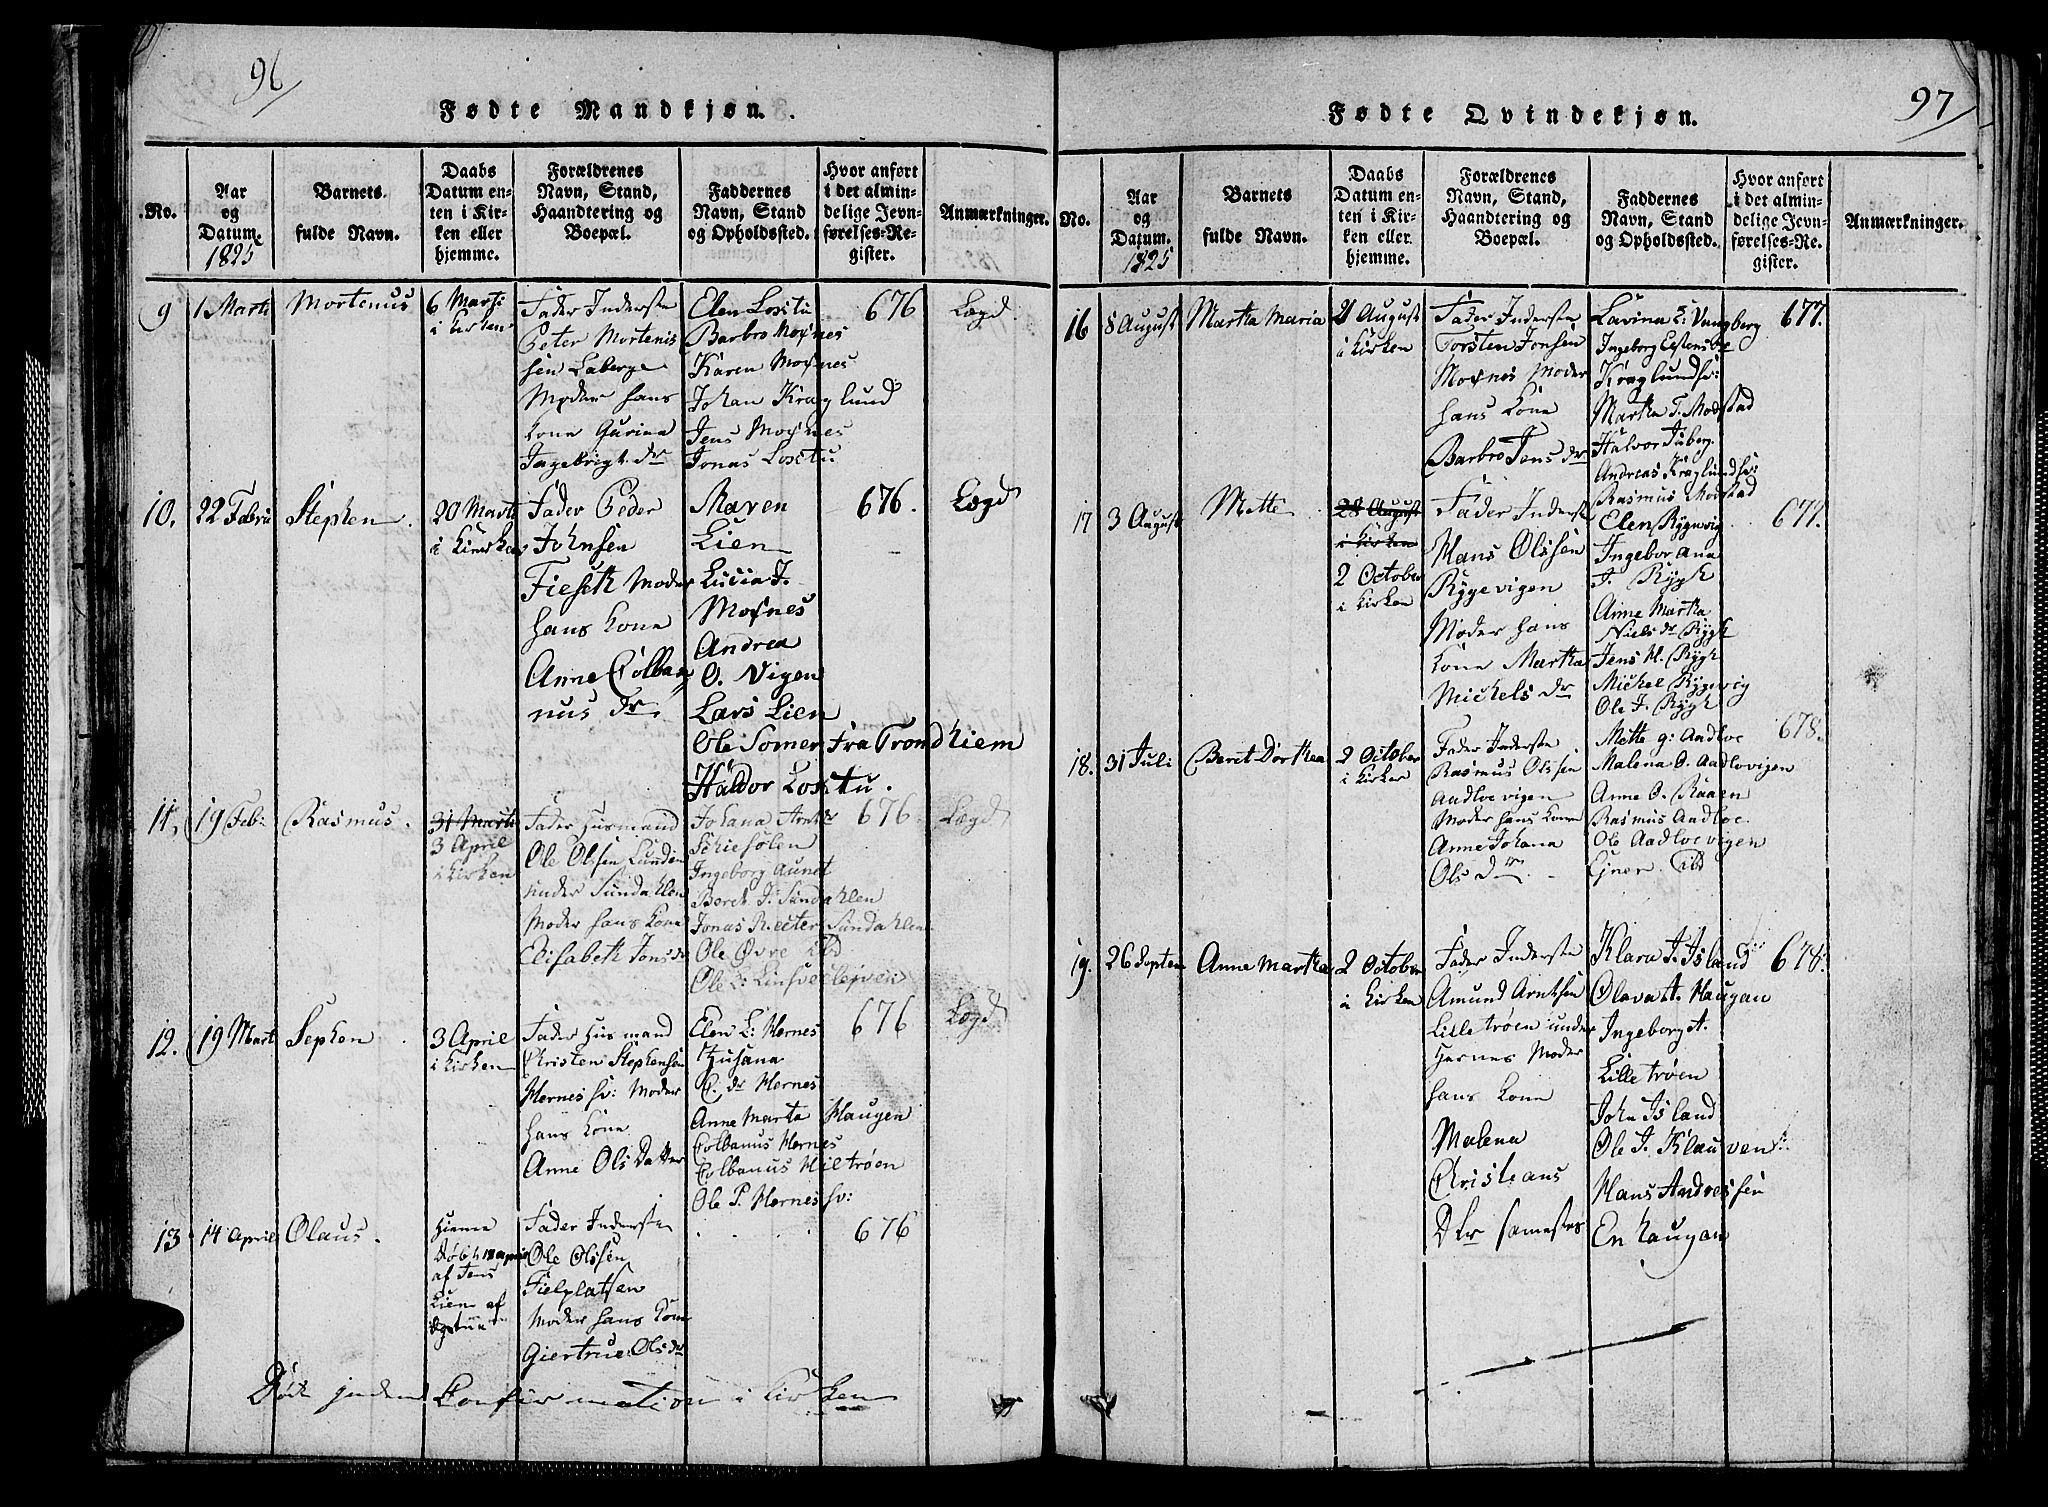 96
Fødte Mandkjøn.
No.
Aar
og
Datum.
1825
Barnets
fulde Navn.
Daabs
Datum en-
ten i Kir-
ken eller
hjemme.
Forældrenes
Navn, Stand,
Haandtering og
Boepæl.
Faddernes
Navn, Stand
og Opholdssted.
Hvor anført
i det almin-
delige Jevn-
førelses-Re-
gister.
Anmærkninger.
9
1 Marti
Mortenus
6 Marti
i Kirken
Fader Inderste
Peter Mortenis
sen Laberge
Moder hans
Kone Gurina
Ingebrigt dr
Elen Loxtu
Barbro Moxnes
Karen Moxnes
Johan Kraglund
Jens Moxnes
Jonas Loxtu.
676
Lægd
10.
22 Febru
Stephen.
20 Marti
i Kirken
Fader Peder
Johnsen
Fieseth Moder
hans Kone
Anne Colban
nus dr
Maren
Lien
Lucia J.
Moxnes
Andrea
O. Vigen
Lars Lien
Ole Somer fra Trondhiem
Haldor Loxtu.
676.
Lægd
11.
19 Feb:
Rasmus.
31 Marti
3 April
i Kirken
Fader Husmand
Ole Olssen Lunden
under Sundahlen
Moder hans Kone
Elisabeth Jonsdr
Johana Arntdr
Schiesølen
Ingeborg Aunet
Beret J: Sundahlen
Jonas Reeter Sundahlen
Ole Øvre ibd
676.
Lægd
12.
19 Mart
Sephen
3 April
i Kirken
Fader Husmand
Christen Stephensen
Hernes sv: Moder
hans Kone
Anne Ols Datter
Elen L: Hernes
Susana
C. dr Hernes
Anne Marta Haugen
Colbanus Hernes
Colbanus Hiltrøen
Ole P. Hernes sv:
676
Lægd
13
14 April
Olaus.
Hieme
Døbt 18 april
af Jens
Lien af
Fader Inderste
Ole Olssen
Fielplatsen
Moder hans Kone
Giertrue Ols dr
676
Død inden Confirmation i Kirken
97
Fødte Qvindekjøn.
No.
Aar
og
Datum.
1825
Barnets
fulde Navn.
Daabs
Datum en-
ten i Kir-
ken eller
hjemme.
Forældrenes
Navn, Stand,
Haandtering og
Boepæl.
Faddernes
Navn, Stand
og Opholdssted.
Hvor anført
i det almin-
delige Jevn-
førelses-Re-
gister.
Anmærkninger.
16
8 August
Martha Maria
21 August
i Kirken
Fader Inderste
Torsten Jonsen
Moxnes Moder
hans Kone
Barbro Jens dr
Lavina E: Vangberg
Ingeborg Estens
Kraglundsv:
Martha T. Modstad
Halvor Juberg.
Andreas Kraglundsv:
Rasmus Modstad
677.
17
3 August
Mette
28 August
i Kirken
2 October
i Kirken
Fader Inderste
Hans Olssen
Rygevigen
Moder hans
Kone Martha
Michels dr
Elen Rygvig
Ingebor ana
J. Rygh
Anne Martha
Niels dr Rygh
Jens H. Rygh
Michel Rygvig
Ole J. Rygh
677.
18.
31 Juli
Berit Dorthea
2 October
i Kirken
Fader Inderste
Rasmus Olssen
Aadloevigen
Moder hans Kone
Anne Johana
Ols dr
Mette G: Aadloe
Malena O. Aadlovigen
Anne O. Raaen
Rasmus Aadloe
Ole Aadloevigen
Ejner ibd
678.
19.
26 Septem
Anne Martha
2 October
i Kirken
Fader Inderste
Amund Arntsen
Lilletrøen under
Hernes Moder
hans Kone
Malena
Christians
Dtr sammested
Klara J. Island
Olava A. Haugan
Ingeborg A.
Lilletrøen
John Island
Ole J. Klauven
Hans Andressen
Enhaugan
678.